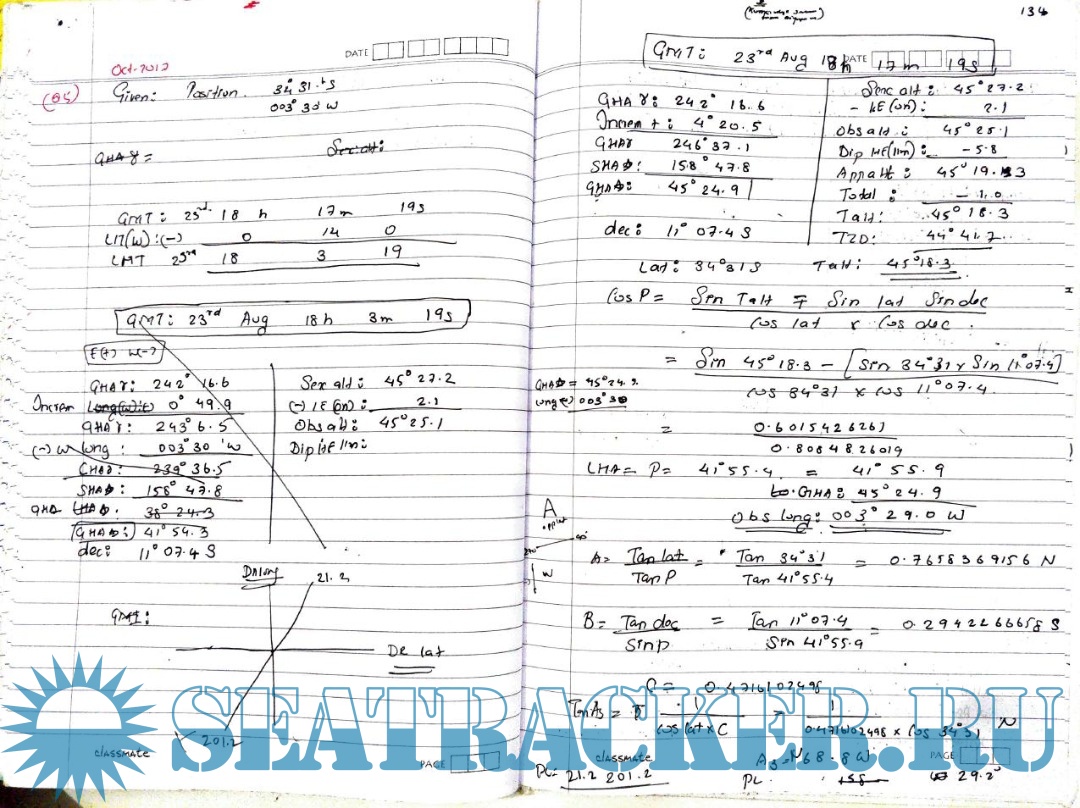 DATE
Oct-2012
(Q5) Given: Position 34° 31.1 S
003° 30 W
GHA ♈ =
GMT: 23rd 18 h 17m 19s
LIT(W):(-) 0 14 0
LMT 23rd 18 3 19
GMT: 23rd Aug 18h 3m 19s
E(+) W(-)
GHA ♈: 242° 16.6
Increm Long(w)(-) 0° 49.9
GHA ♈: 243° 6.5
(-) W long: 003° 30' W
GHA ♈: 239° 36.5
SHA☆: 158° 47.8
GHA LHA☆: 38° 24.3
GHA☆: 41° 54.3
dec: 11° 07.4 S
Sex alt: 45° 27.2
(-) IE (on): 2.1
Obs alt: 45° 25.1
Dip HE 11m:
D'long 21.2
GMT:
De lat
201.2
classmate
PAGE
134
GMT: 23rd Aug 18h 17m 19s
DATE
GHA ♈: 242° 16.6
Increm t: 4° 20.5
GHA ♈ 246° 37.1
SHA☆: 158° 47.8
GHA☆: 45° 24.9
dec: 11° 07.4 S
Sex alt: 45° 27.2
- IE (on): 2.1
Obs alt: 45° 25.1
Dip HE(11m): -5.8
App alt: 45° 19.3
Total: -1.0
T alt: 45° 18.3
TZD: 44° 41.7
Lat: 34° 31 S T alt: 45° 18.3
Cos P = Sin T alt ∓ Sin lat Sin dec
Cos lat x Cos dec.
= Sin 45° 18.3 - [Sin 34° 31 x Sin 11° 07.4]
cos 34° 31 x cos 11° 07.4
GHA☆ = 45° 24.9
long(-) 003° 30
= 0.6015426261
0.8084826019
LHA = P = 41° 55.4 = 41° 55.9
GHA: 45° 24.9
Obs long: 003° 29.0 W
A = Tan lat = Tan 34° 31 = 0.7658369156 N
Tan P Tan 41° 55.4
W
B = Tan dec = Tan 11° 07.4 = 0.2942266658 S
Sin P Sin 41° 55.9
C = 0.4716102498
Tan Az = 1 = 1
cos lat x C 0.4716102498 x cos 34° 31
Az = N 68.8 W
PL: 21.2 201.2
PL
29.2
classmate
PAGE
SEATRACKER.RU